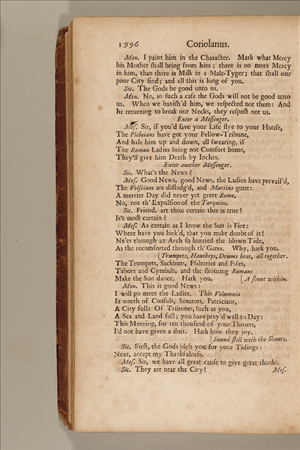 1996 Coriolanus.
Men. I paint him in the Character. Mark what Mercy
his Mother ſhall bring from him; there is no more Mercy
in him, than there is Milk in a Male-Tyger; that ſhall our
poor City find; and all this is long of you.
Sic. The Gods be good unto us.
Men. No, in ſuch a caſe the Gods will not be good unto
us. When we baniſh'd him, we reſpected not them: And
he returning to break our Necks, they reſpect not us.
Enter a Meſſenger.
Meſ. Sir, if you'd ſave your Life flye to your Houſe,
The Plebeians have got your Fellow-Tribune,
And hale him up and down, all ſwearing, if
The Roman Ladies bring not Comfort home,
They'll give him Death by Inches.
Enter another Meſſenger.
Sic. What's the News?
Meſ. Good News, good News, the Ladies have prevail'd,
The Volſcians are diſlodg'd, and Martius gone:
A merrier Day did never yet greet Rome,
No, not th' Expulſion of the Tarquins.
Sic. Friend, art thou certain this is true?
Is't moſt certain?
Meſ. As certain as I know the Sun is Fire:
Where have you lurk'd, that you make doubt of it?
Ne'er through an Arch ſo hurried the blown Tide,
As the recomforted through th' Gates. Why, hark you.
[Trumpets, Hautboys, Drums beat, all together.
The Trumpets, Sackbuts, Pſalteries and Fifes,
Tabors and Cymbals, and the ſhouting Romans
Make the Sun dance. Hark you. [A ſhout within.
Men. This is good News:
I will go meet the Ladies. This Volumnia
Is worth of Conſuls, Senators, Patricians,
A City full: Of Tribunes, ſuch as you,
A Sea and Land full; you have pray'd well to Day:
This Morning, for ten thouſand of your Throats,
I'd not have given a doit. Hark how they joy.
[Sound ſtill with the Shouts.
Sic. Firſt, the Gods bleſs you for your Tidings:
Next, accept my Thankfulneſs.
Meſ. Sir, we have all great cauſe to give great thanks.
Sic. They are near the City? Meſ.